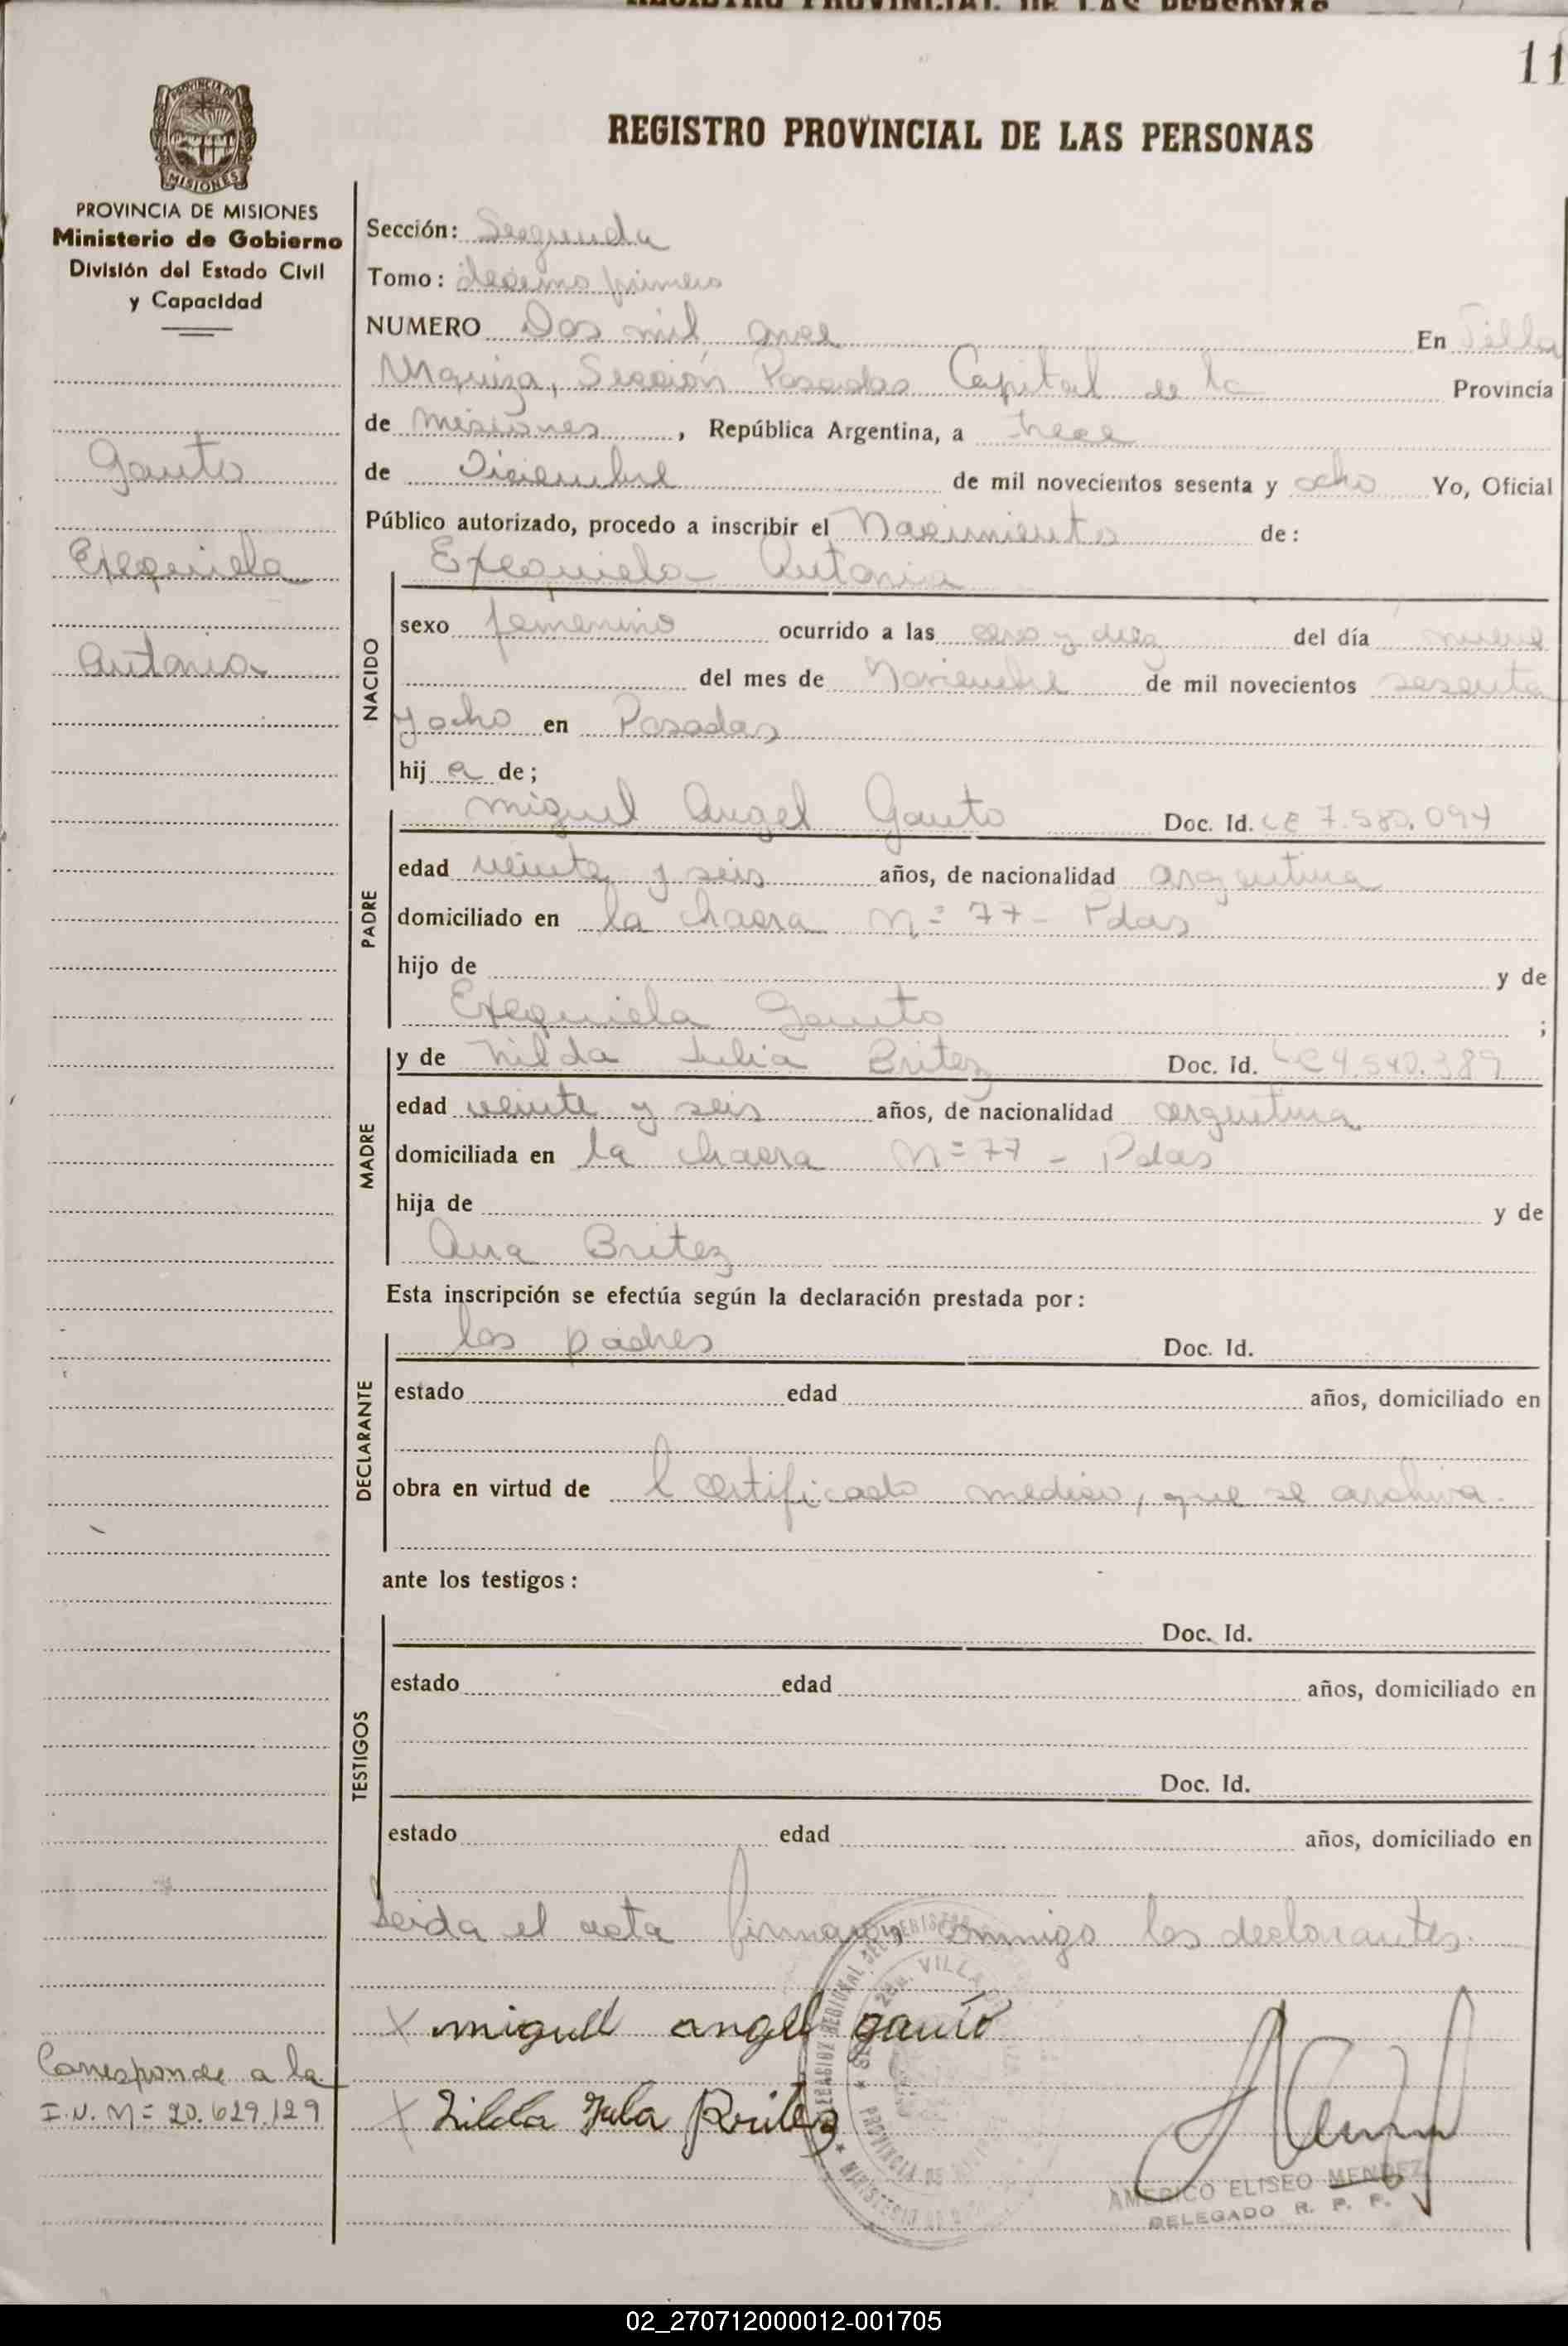 11
REGISTRO PROVINCIAL DE LAS PERSONAS
PROVINCIA DE MISIONES
Ministerio de Gobierno
División del Estado Civil
y Capacidad
Gauto
Exequiela
Antonia
Sección: Segunda
Tomo: decimo primero
NUMERO Dos mil once En Villa
Urquiza, Sección Posadas Capital de la Provincia
de Misiones, República Argentina, a trece
de Diciembre de mil novecientos sesenta y ocho Yo, Oficial
Público autorizado, procedo a inscribir el Nacimiento de:
Exequiela Antonia
NACIDO
sexo femenino ocurrido a las cero y diez del día nueve
del mes de Noviembre de mil novecientos sesenta
y ocho en Posadas
hija de;
PADRE
Miguel Angel Gauto Doc. Id. LE 7.580.094
edad veinte y seis años, de nacionalidad argentina
domiciliado en la chacra Nº 77 - Pdas
hijo de y de
Exequiela Gauto ;
MADRE
y de Nilda Julia Britez Doc. Id. LC 4.540.389
edad veinte y seis años, de nacionalidad argentina
domiciliada en la chacra Nº 77 - Pdas
hija de y de
Ana Britez
Esta inscripción se efectúa según la declaración prestada por:
DECLARANTE
los padres Doc. Id.
estado edad años, domiciliado en
obra en virtud de l certificado medico, que se archiva.
ante los testigos:
TESTIGOS
Doc. Id.
estado edad años, domiciliado en
Doc. Id.
estado edad años, domiciliado en
Leida el acta firmaron conmigo los declarantes.
X miguel angel gauto
X Nilda Jula Britez
Corresponde a la
I.N. Nº 20.629.129
AMERICO ELISEO MENDEZ
DELEGADO R. P. P.
02_270712000012-001705